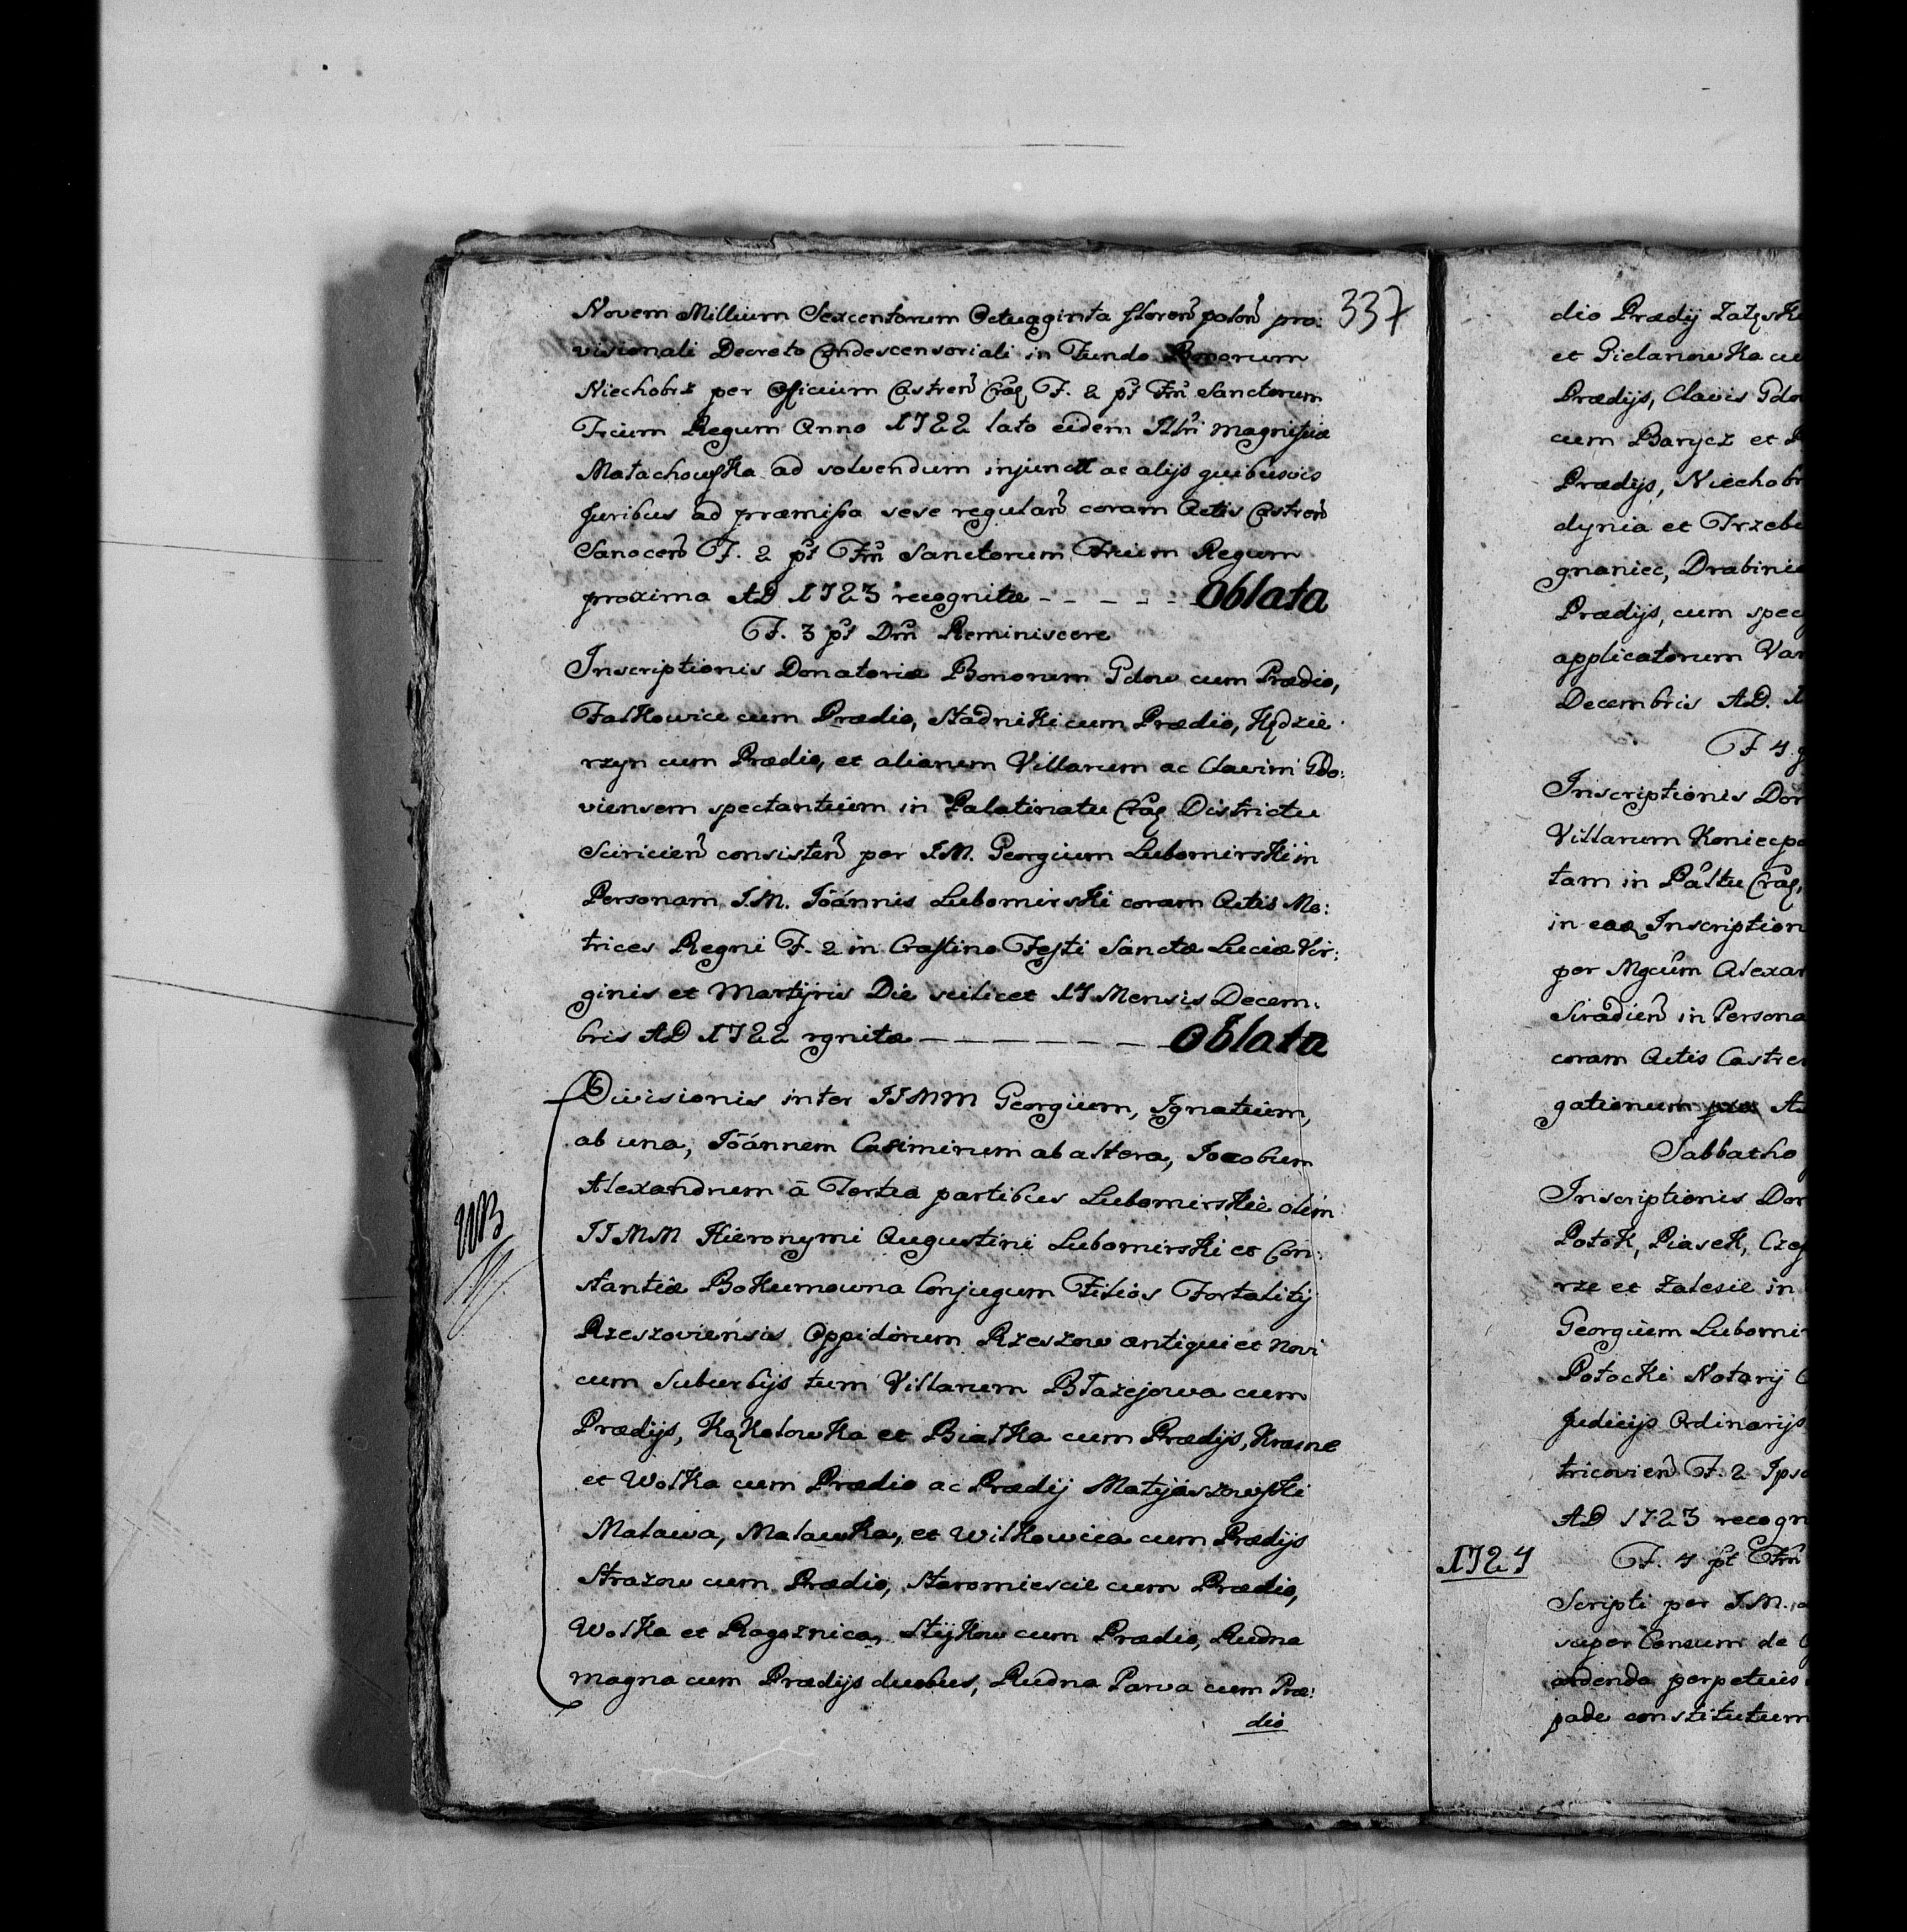 337
Novem Millium Sexcentorum Octuagginta floren̄ polon̄ pro:
visionali Decreto Condescensoriali in Fundo Bonorum
Niechobrz per Officium Castren̄ Crac̄ F. 2 pt̄ Ftm̄ Sanctorum
Trium Regum Anno 1722 lato eidem Illri Magnificæ
Małachowska ad solvendum injunct ac alijs quibusvis
Juribus ad præmissa sese regulan̄ coram Actis Castren̄
Sanocen̄ F. 2 pt̄ Ftm̄ Sanctorum Trium Regum
proxima AD 1723 recognitæ - - - - - Oblata
F. 3 pt̄ Dm̄ Reminiscere
Inscriptionis Donatoriæ Bonorum Gdow cum Prædio,
Falkowice cum Prædio, Stadniki cum Prædio, Kędzie
rzyn cum Prædio, et aliarum Villarum ac Clavim Gdo:
viensem spectantium in Palatinatu Crac̄ Districtu
Sciricien̄ consisten̄ per I.M. Georgium Lubomirski in
Personam I.M. Ioánnis Lubomirski coram Actis Me:
trices Regni F. 2 in Crastino Festi Sanctæ Luciæ Vir:
ginis et Martijris Die scilicet 14 Mensis Decem:
bris AD 1722 rgnitæ - - - - - - - Oblata
Divisionis inter IIMM Georgium, Ignatium,
ab una, Ioánnem Casimirum ab altera, Jacobum
Alexandrum à Tertia partibus Lubomirskie olim
IIMM Hieronymi Augustini Lubomirski et Con:
stantiæ Bokumowna Conjugum Filios Fortalitij
Rzeszoviensis Oppidorum Rzeszow antiqui et novi
cum Suburbijs tum Villarum Błażejowa cum
Prædijs, Kąkolowka et Białka cum Prædijs, Krasne
et Wolka cum Prædio ac Prædij Matyjaszowski
Malawa, Malawka, et Wilkowica cum Prædijs
Strazow cum Prædio, Staromiescie cum Prædio,
Wolka et Rogoznica, Stÿkow cum Prædio, Rudna
magna cum Prædijs duobus, Rudna Parva cum Præ:
dio
NB
dio Prædij Załęski
et Gielanowka cu
Prædijs, Clavis Gdo
cum Barycz et
Prædijs, Niechobr
dynia et Trzebo
gnaniec, Drabini
Prædijs, cum spec
applicatorum Var
Decembris AD.
F 4
Inscriptionis Don
Villarum Koniecpo
tam in Páltu Crac̄,
in eaq Inscription
per Mgcum Alexan
Siradien̄ in Persona
coram Actis Castren
gationum A
Sabbatho
Inscriptionis Don
Potok, Piasek, Czeg
rze et Zalesie in
Georgium Lubomi
Potocki Notarij
Judicijs Ordinarijs
tricovien̄ F. 2 Ipso
AD 1723 recogn
1724 F. 4 pt̄ Ftm̄
Scripti per I.M.
super Censum de
ardenda perpetuis
pade constitutum